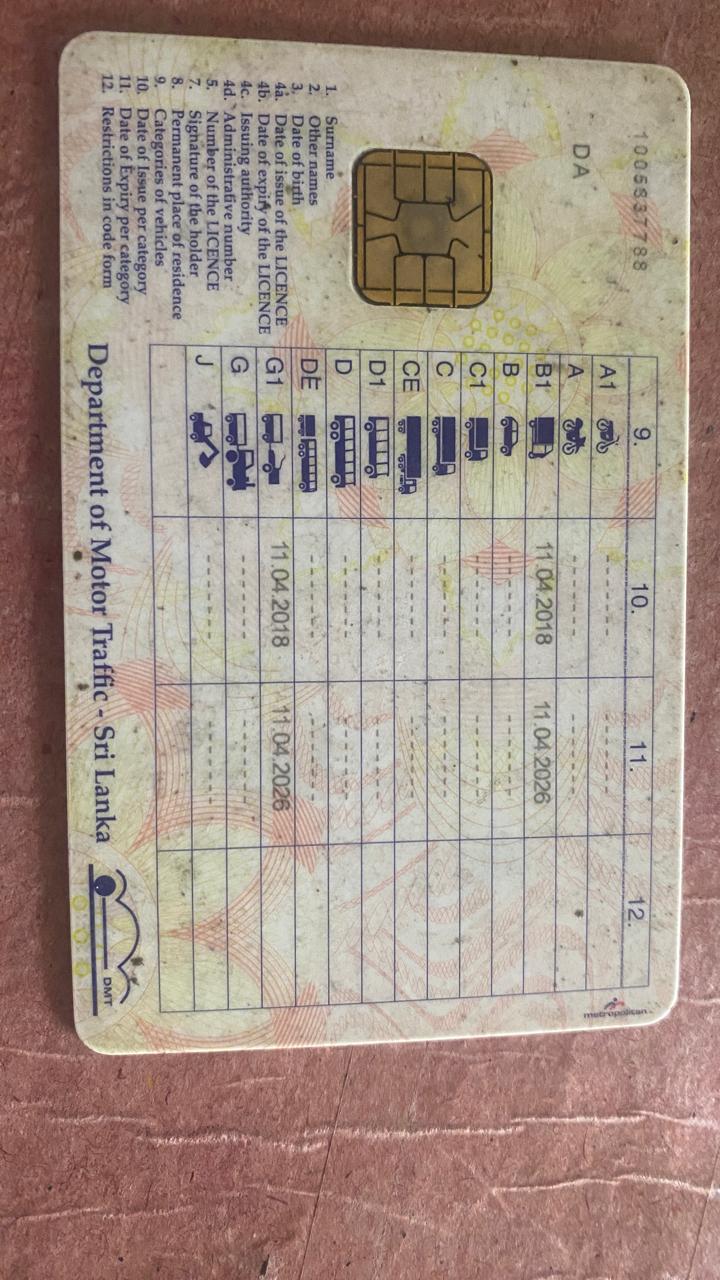 1005837788
DA
1. Surname
2. Other names
3. Date of birth
4a. Date of issue of the LICENCE
4b. Date of expiry of the LICENCE
4c. Issuing authority
4d. Administrative number
5. Number of the LICENCE
7. Signature of the holder
8. Permanent place of residence
9. Categories of vehicles
10. Date of Issue per category
11. Date of Expiry per category
12. Restrictions in code form
9. 10. 11. 12.
A1 ------ ------
A ------ ------
B1 11.04.2018 11.04.2026
B ------ ------
C1 ------ ------
C ------ ------
CE ------ ------
D1 ------ ------
D ------ ------
DE ------ ------
G1 11.04.2018 11.04.2026
G ------ ------
J ------ ------
metropolitan
Department of Motor Traffic - Sri Lanka
DMT